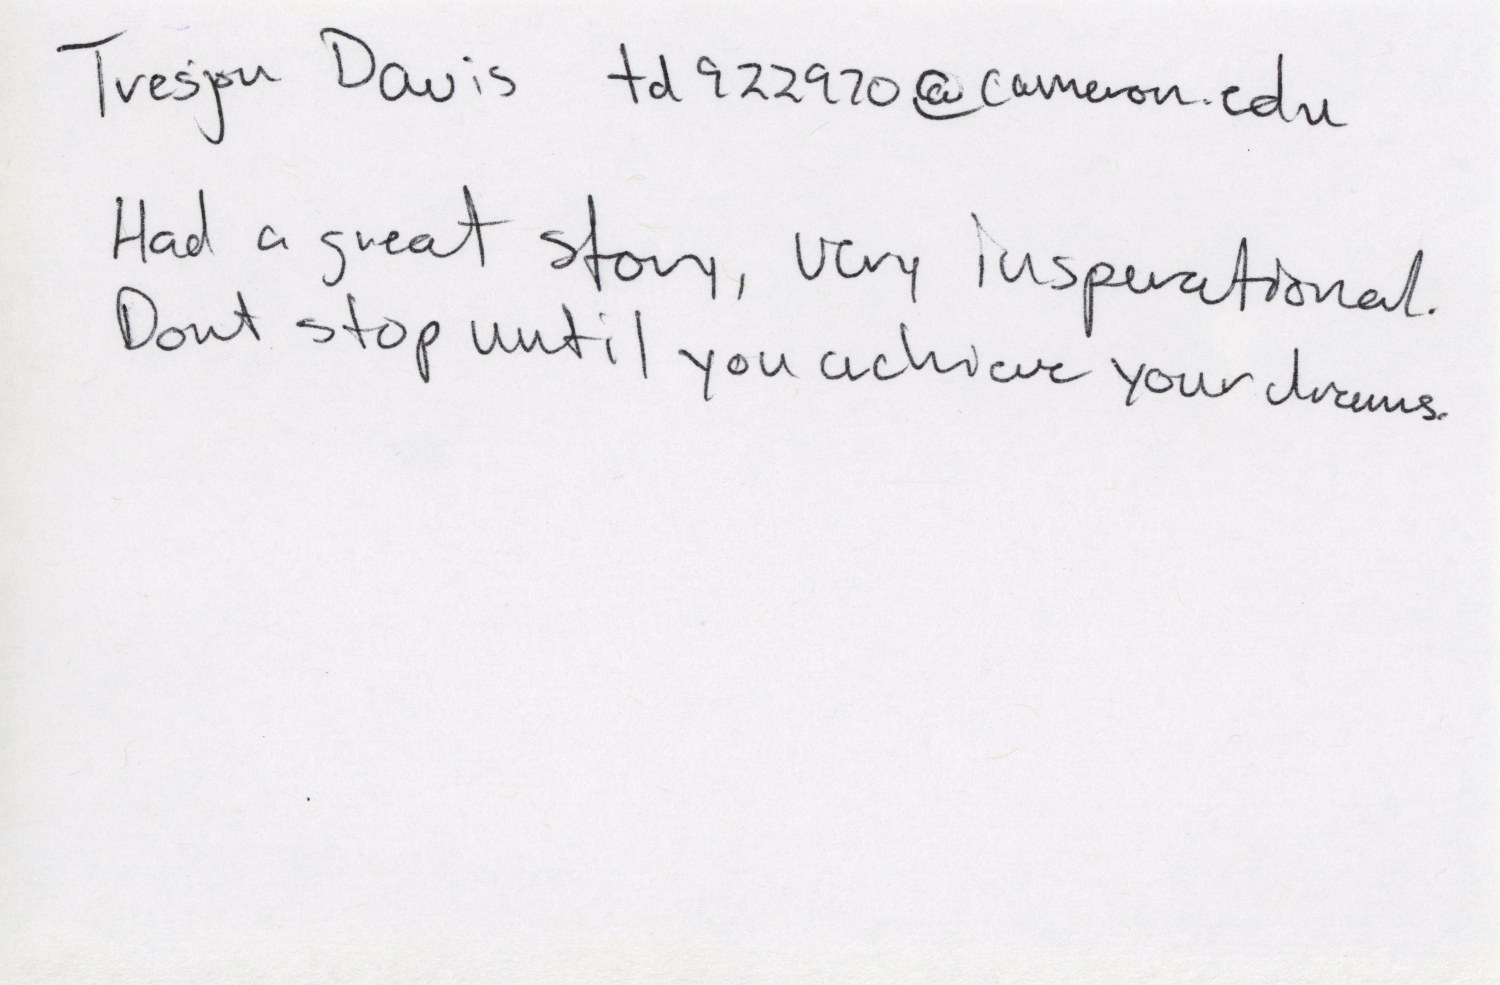 Tresjon Davis td922970@cameron.edu
Had a great story, very Insperational.
Dont stop until you achieve your dreams.